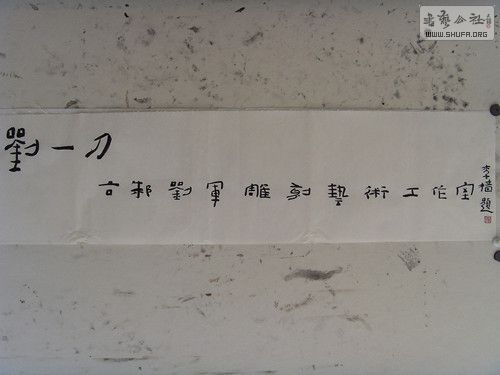 書藝公社
WWW.SHUFA.ORG
劉一刀
古邾劉軍雕刻藝術工作室
題